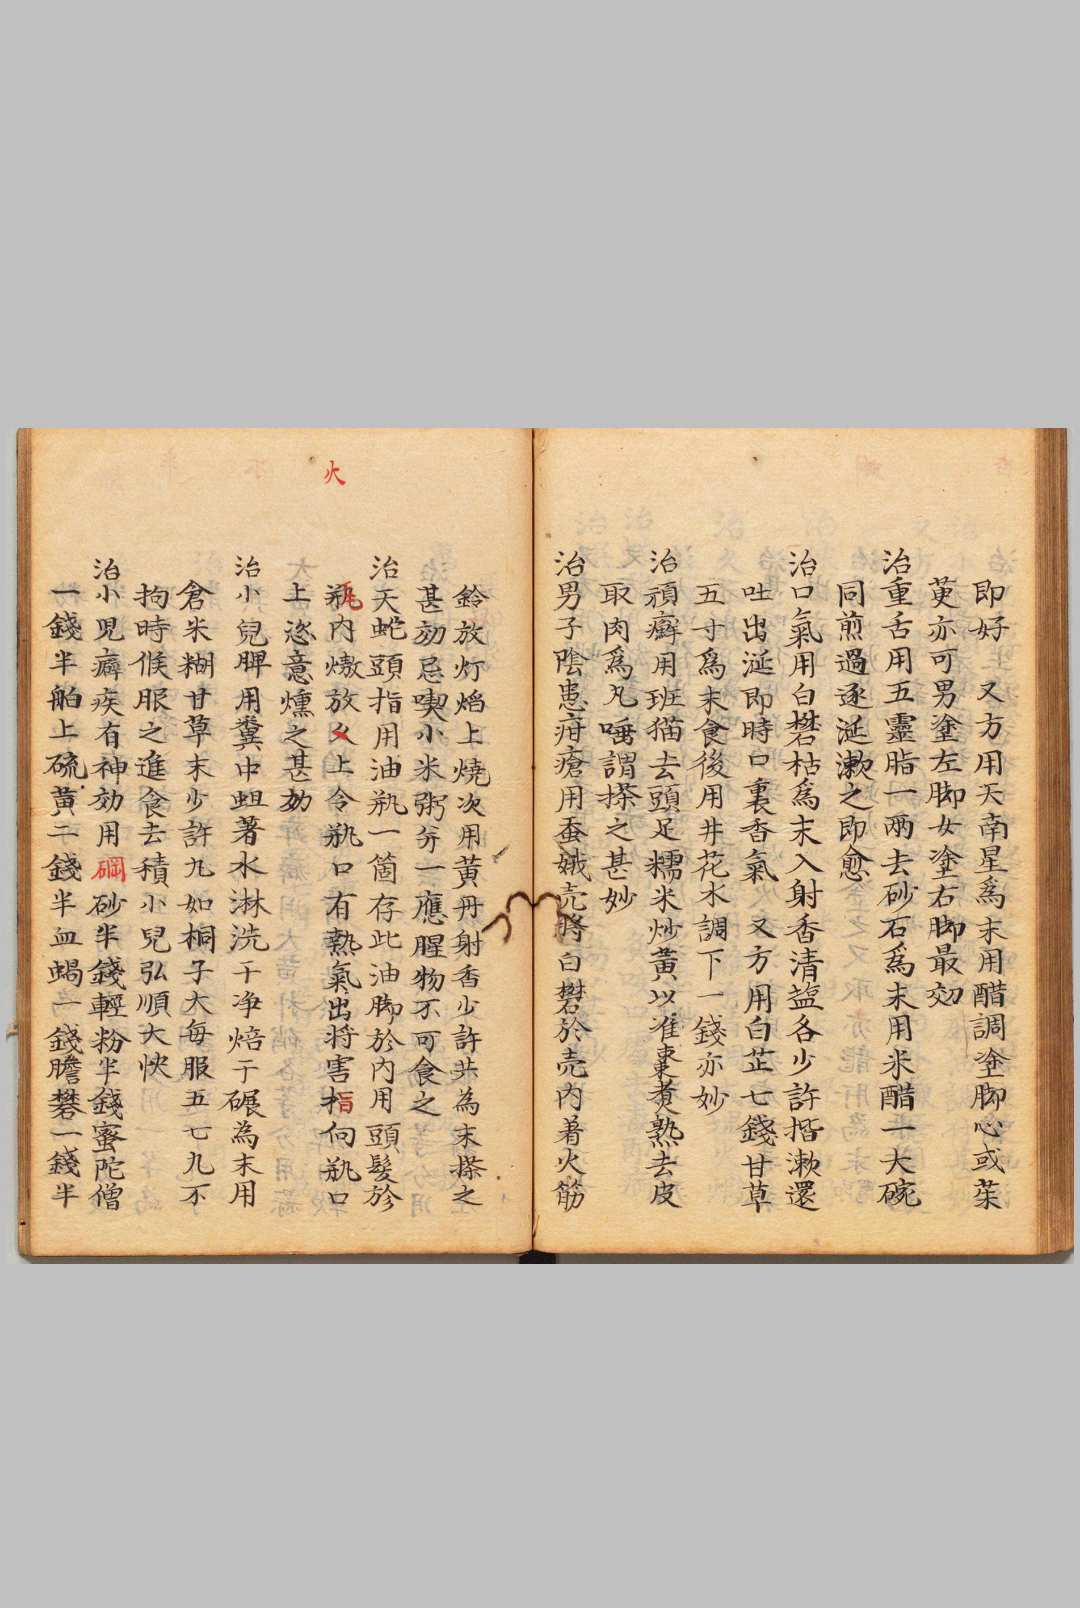 即好　又方用天南星為末用醋調塗脚心或茱
萸亦可男塗左脚女塗右脚最効
治重舌用五靈脂一兩去砂石爲末用米醋一大碗
同煎過逐涎漱之即愈
治口氣用白礬枯爲末入射香清䀋各少許揩漱還
吐出涎即時口裏香氣　又方用白芷七錢甘草
五寸爲末食後用井花水調下一錢亦妙
治頑癬用班猫去頭足糯米炒黄以准棗煑熟去皮
取肉爲丸唾謂搽之甚妙
治男子陰患疳瘡用蚕蛾売將白礬於売内着火筯
鈴放灯焰上燒次用黄丹射香少許共為末搽之
甚効忌喫小米粥并一應腥物不可食之
治天蛇頭指用油瓶一箇存此油脚於内用頭髮於
火
瓶内燉放火上令瓶口有熱氣出将害指向瓶口
上恣意燻之甚効
治小兒脾用糞中蛆著水淋洗干净焙干碾為末用
倉米糊甘草末少許九如桐子大每服五七九不
拘時候服之進食去積小兒弘順大快
治小児癖疾有神効用硇砂半錢輕粉半錢蜜陀僧
一錢半舶上硫黄二錢半血蝎一錢膽礬一錢半